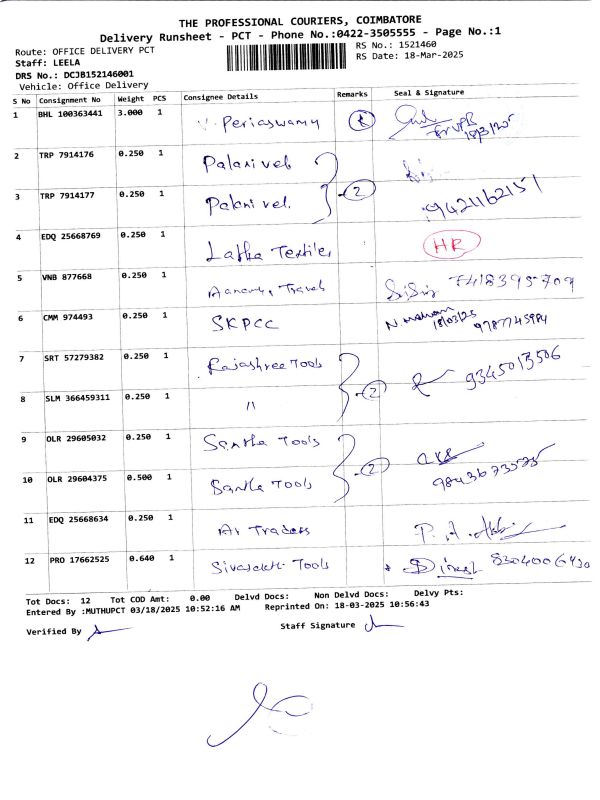 THE PROFESSIONAL COURIERS, COIMBATORE
Delivery Runsheet - PCT - Phone No.:0422-3505555 - Page No.:1
Route: OFFICE DELIVERY PCT
RS No.: 1521460
Staff: LEELA
RS Date: 18-Mar-2025
DRS No.: DCJB152146001
Vehicle: Office Delivery
S No Consignment No Weight PCS Consignee Details Remarks Seal & Signature
1 BHL 100363441 3.000 1 V. Periaswamy 1
18/3/25
2 TRP 7914176 0.250 1 Palanivel
3 TRP 7914177 0.250 1 Palanivel. 2 9421162151
4 EDQ 25668769 0.250 1 Latha Textiles HR
5 VNB 877668 0.250 1 Travels 7418395709
6 CMM 974493 0.250 1 SKPCC N. Mohan
18/03/25 9787745984
7 SRT 57279382 0.250 1 Rajashree Tools
8 SLM 366459311 0.250 1 " 2 9345013506
9 OLR 29605032 0.250 1 Santha Tools
10 OLR 29604375 0.500 1 Santha Tools 2 9843673575
11 EDQ 25668634 0.250 1 Ar Traders
12 PRO 17662525 0.640 1 Sivasakthi Tools Dinesh 8304006430
Tot Docs: 12 Tot COD Amt: 0.00 Delvd Docs: Non Delvd Docs: Delvy Pts:
Entered By :MUTHUPCT 03/18/2025 10:52:16 AM Reprinted On: 18-03-2025 10:56:43
Verified By
Staff Signature